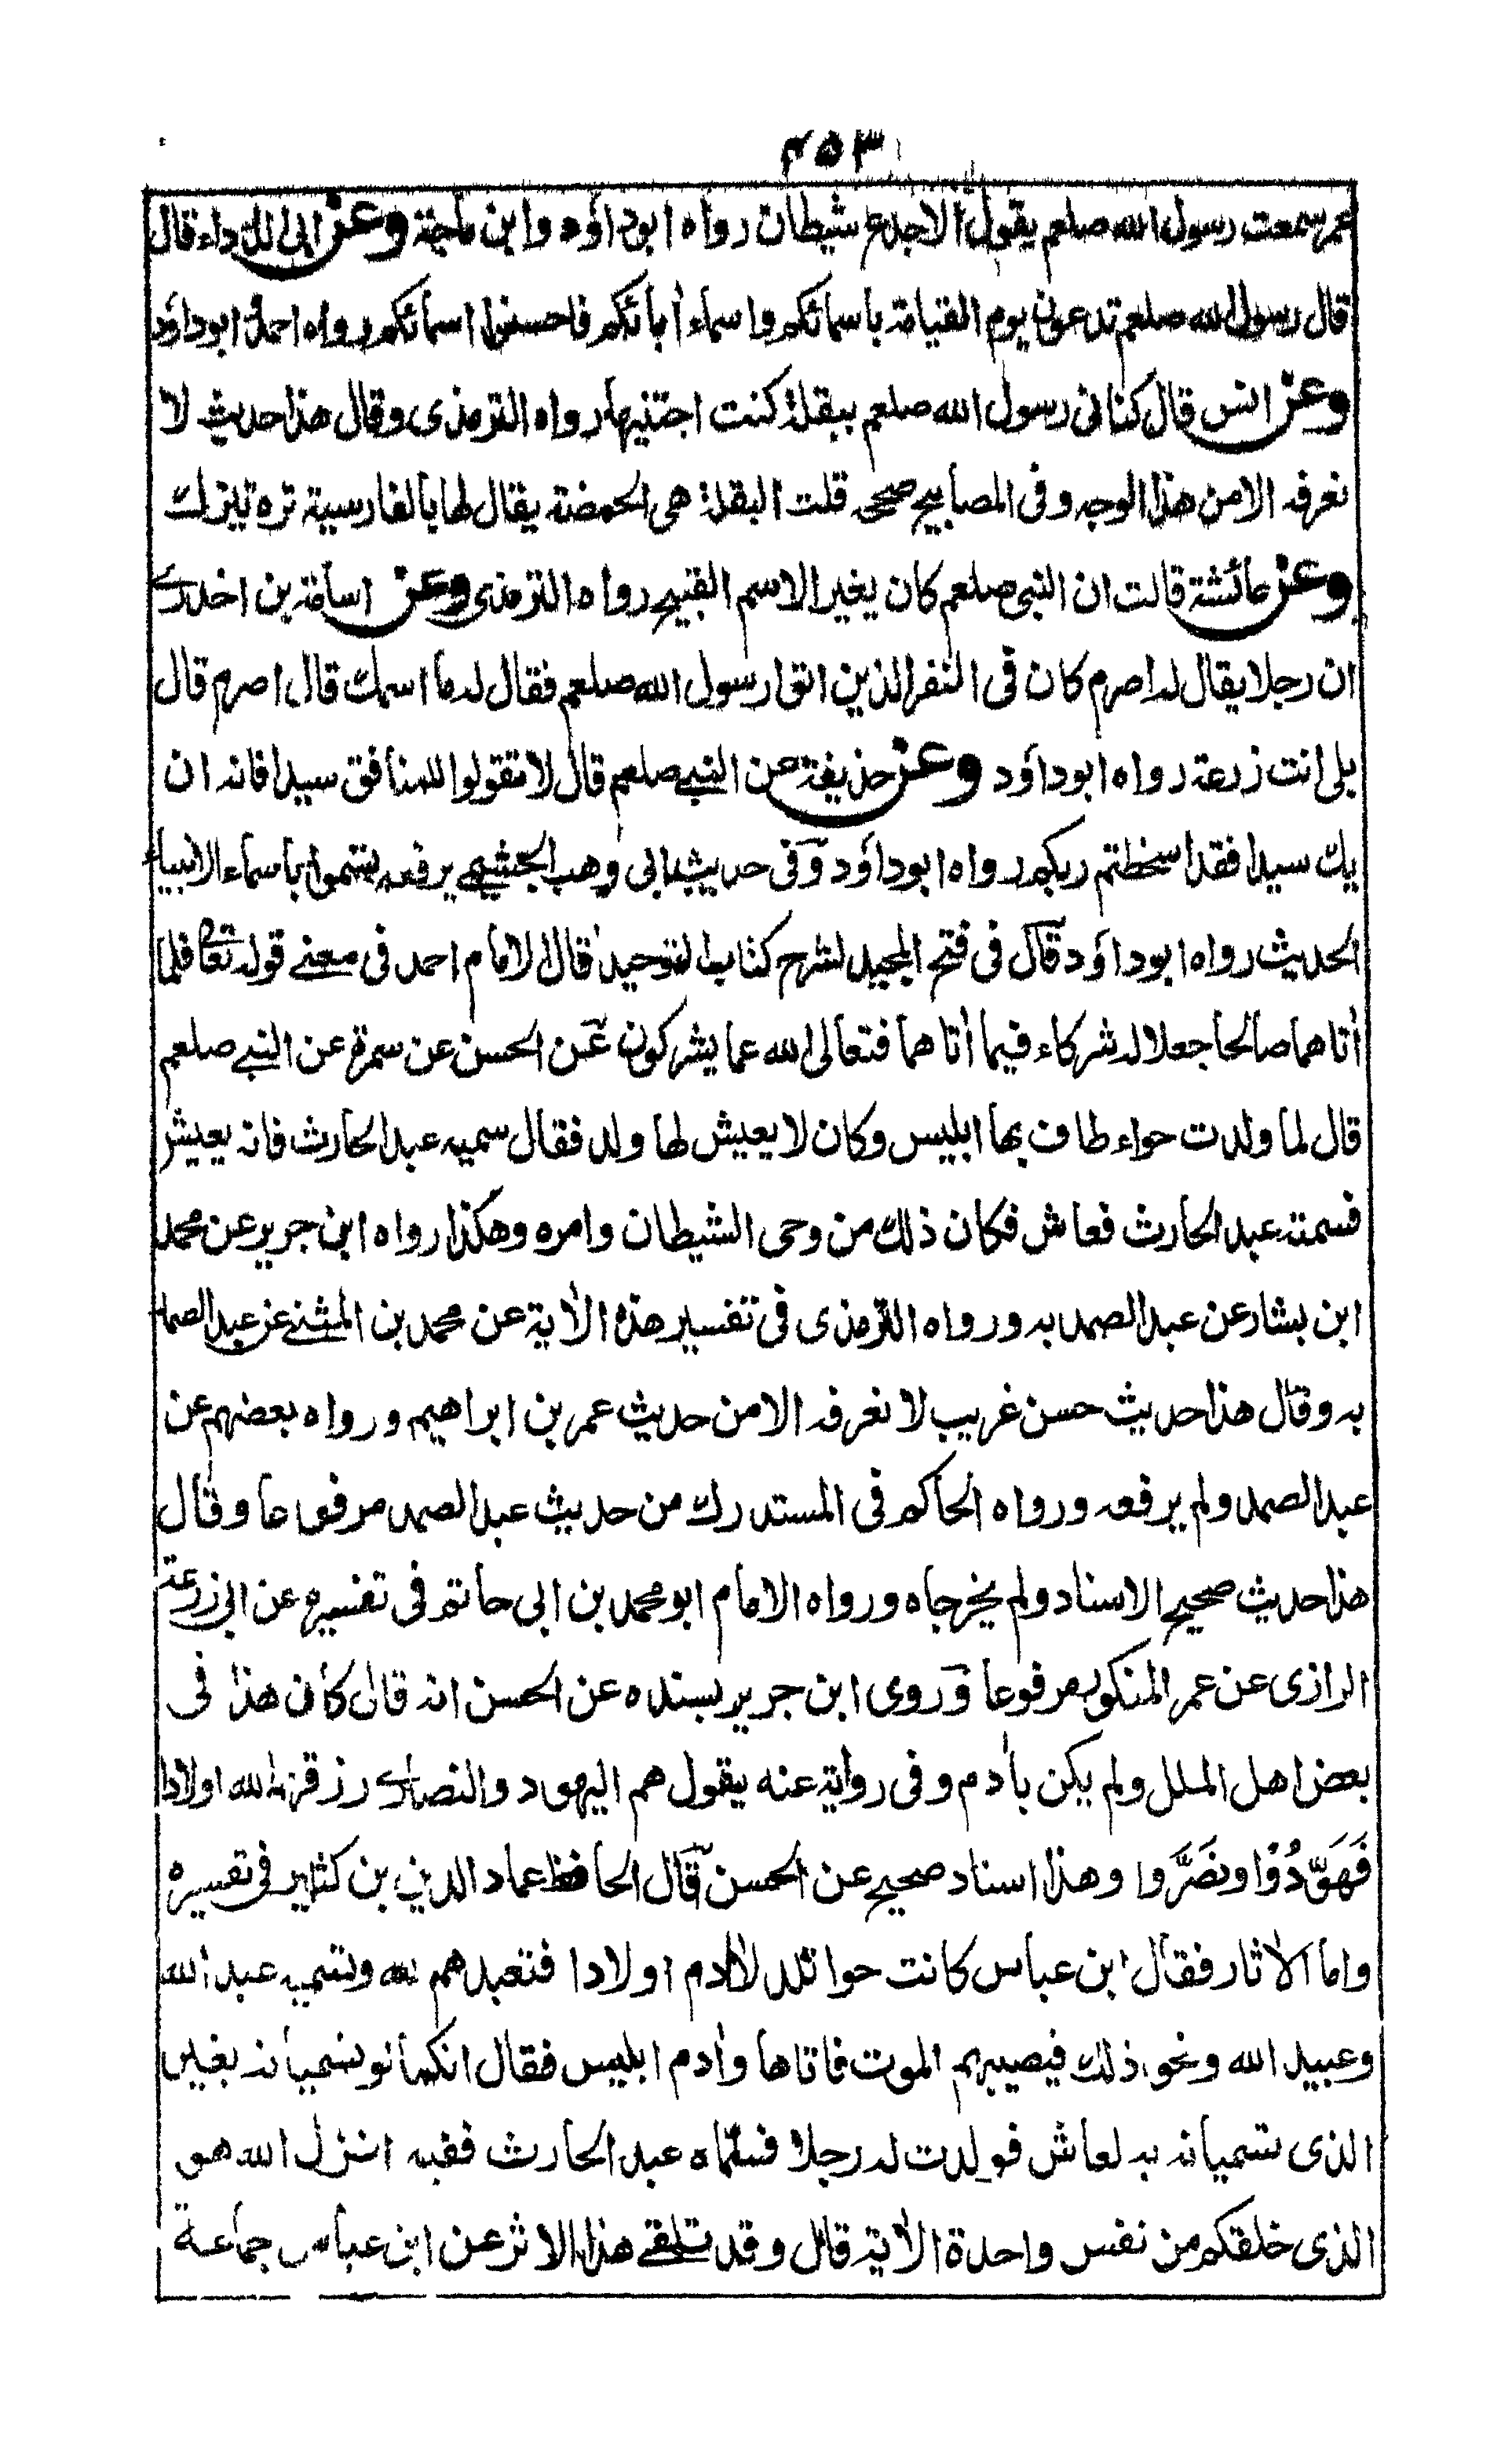 ٤٥٣
عمر سمعت رسول الله صلعم يقول الاجدع شيطان رواه ابوداؤد وابن ماجة وعن ابى الدرداء قال
قال رسول الله صلعم تدعون يوم القيامة باسمائكم واسماء اٰبائكم فاحسنوا اسمائكم رواه احمد وابوداؤد
وعن انس قال كنانى رسول الله صلعم ببقلة كنت اجتنيها رواه الترمذى وقال هذا حديث لا
نعرفه الامن هذا الوجه وفى المصابيح صححه قلت البقلة هى الحمضة يقال لها بالفارسية تره تيزك
وعن عائشة قالت ان النبى صلعم كان يغير الاسم القبيح رواه الترمذى وعن اسامة بن اخدرى
ان رجلا يقال له اصرم كان فى النفر الذين اتوا رسول الله صلعم فقال له ما اسمك قال اصرم قال
بلى انت زرعة رواه ابوداؤد وعن حذيفة عن النبى صلعم قال لا تقولوا للمنافق سيدا فانه ان
يك سيدا فقد اسخطتم ربكم رواه ابوداؤد وفى حديث ابى وهب الجشمى يرفعه تسموا باسماء الانبياء
الحديث رواه ابوداؤد قال فى فتح المجيد لشرح كتاب التوحيد قال الامام احمد فى معنى قوله تعالى فلما
اٰتاهما صالحا جعلا له شركاء فيما اٰتاهما فتعالى الله عما يشركون عن الحسن عن سمرة عن النبى صلعم
قال لما ولدت حواء طاف بها ابليس وكان لا يعيش لها ولد فقال سميه عبد الحارث فانه يعيش
فسمته عبد الحارث فعاش فكان ذلك من وحى الشيطان وامره وهكذا رواه ابن جرير عن محمد
ابن بشار عن عبد الصمد به ورواه الترمذى فى تفسير هذه الاٰية عن محمد بن المثنى عن عبد الصمد
به وقال هذا حديث حسن غريب لا نعرفه الامن حديث عمر بن ابراهيم ورواه بعضهم عن
عبد الصمد ولم يرفعه ورواه الحاكم فى المستدرك من حديث عبد الصمد مرفوعا وقال
هذا حديث صحيح الاسناد ولم يخرجاه ورواه الامام ابو محمد بن ابى حاتم فى تفسيره عن ابى زرعة
الرازى عن عمر المنكوب مرفوعا وروى ابن جرير بسنده عن الحسن انه قال كان هذا فى
بعض اهل الملل ولم يكن باٰدم وفى رواية عنه يقول هم اليهود والنصارى رزقهم الله اولادا
فَهَوَّدُوْا ونَصَّرُوا وهذا اسناد صحيح عن الحسن قال الحافظ عماد الدين بن كثير فى تفسيره
واما الاٰثار فقال ابن عباس كانت حوا تلد لاٰدم اولادا فتعبدهم لله وتسميه عبد الله
وعبيد الله ونحو ذلك فيصيبهم الموت فاتاها واٰدم ابليس فقال انكما لو تسميانه بغير
الذى تسميانه به لعاش فولدت له رجلا فسمّاه عبد الحارث ففيه انزل الله هو
الذى خلقكم من نفس واحدة الاٰية قال وقد تلقى هذا الاثر عن ابن عباس جماعة